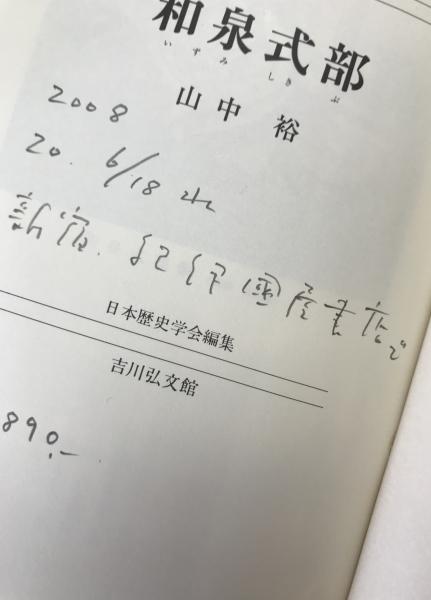 和泉式部
いずみ しきぶ
山中 裕
2008
20. 6/18 水
新宿. 紀伊國屋書店で
日本歴史学会編集
吉川弘文館
890.-